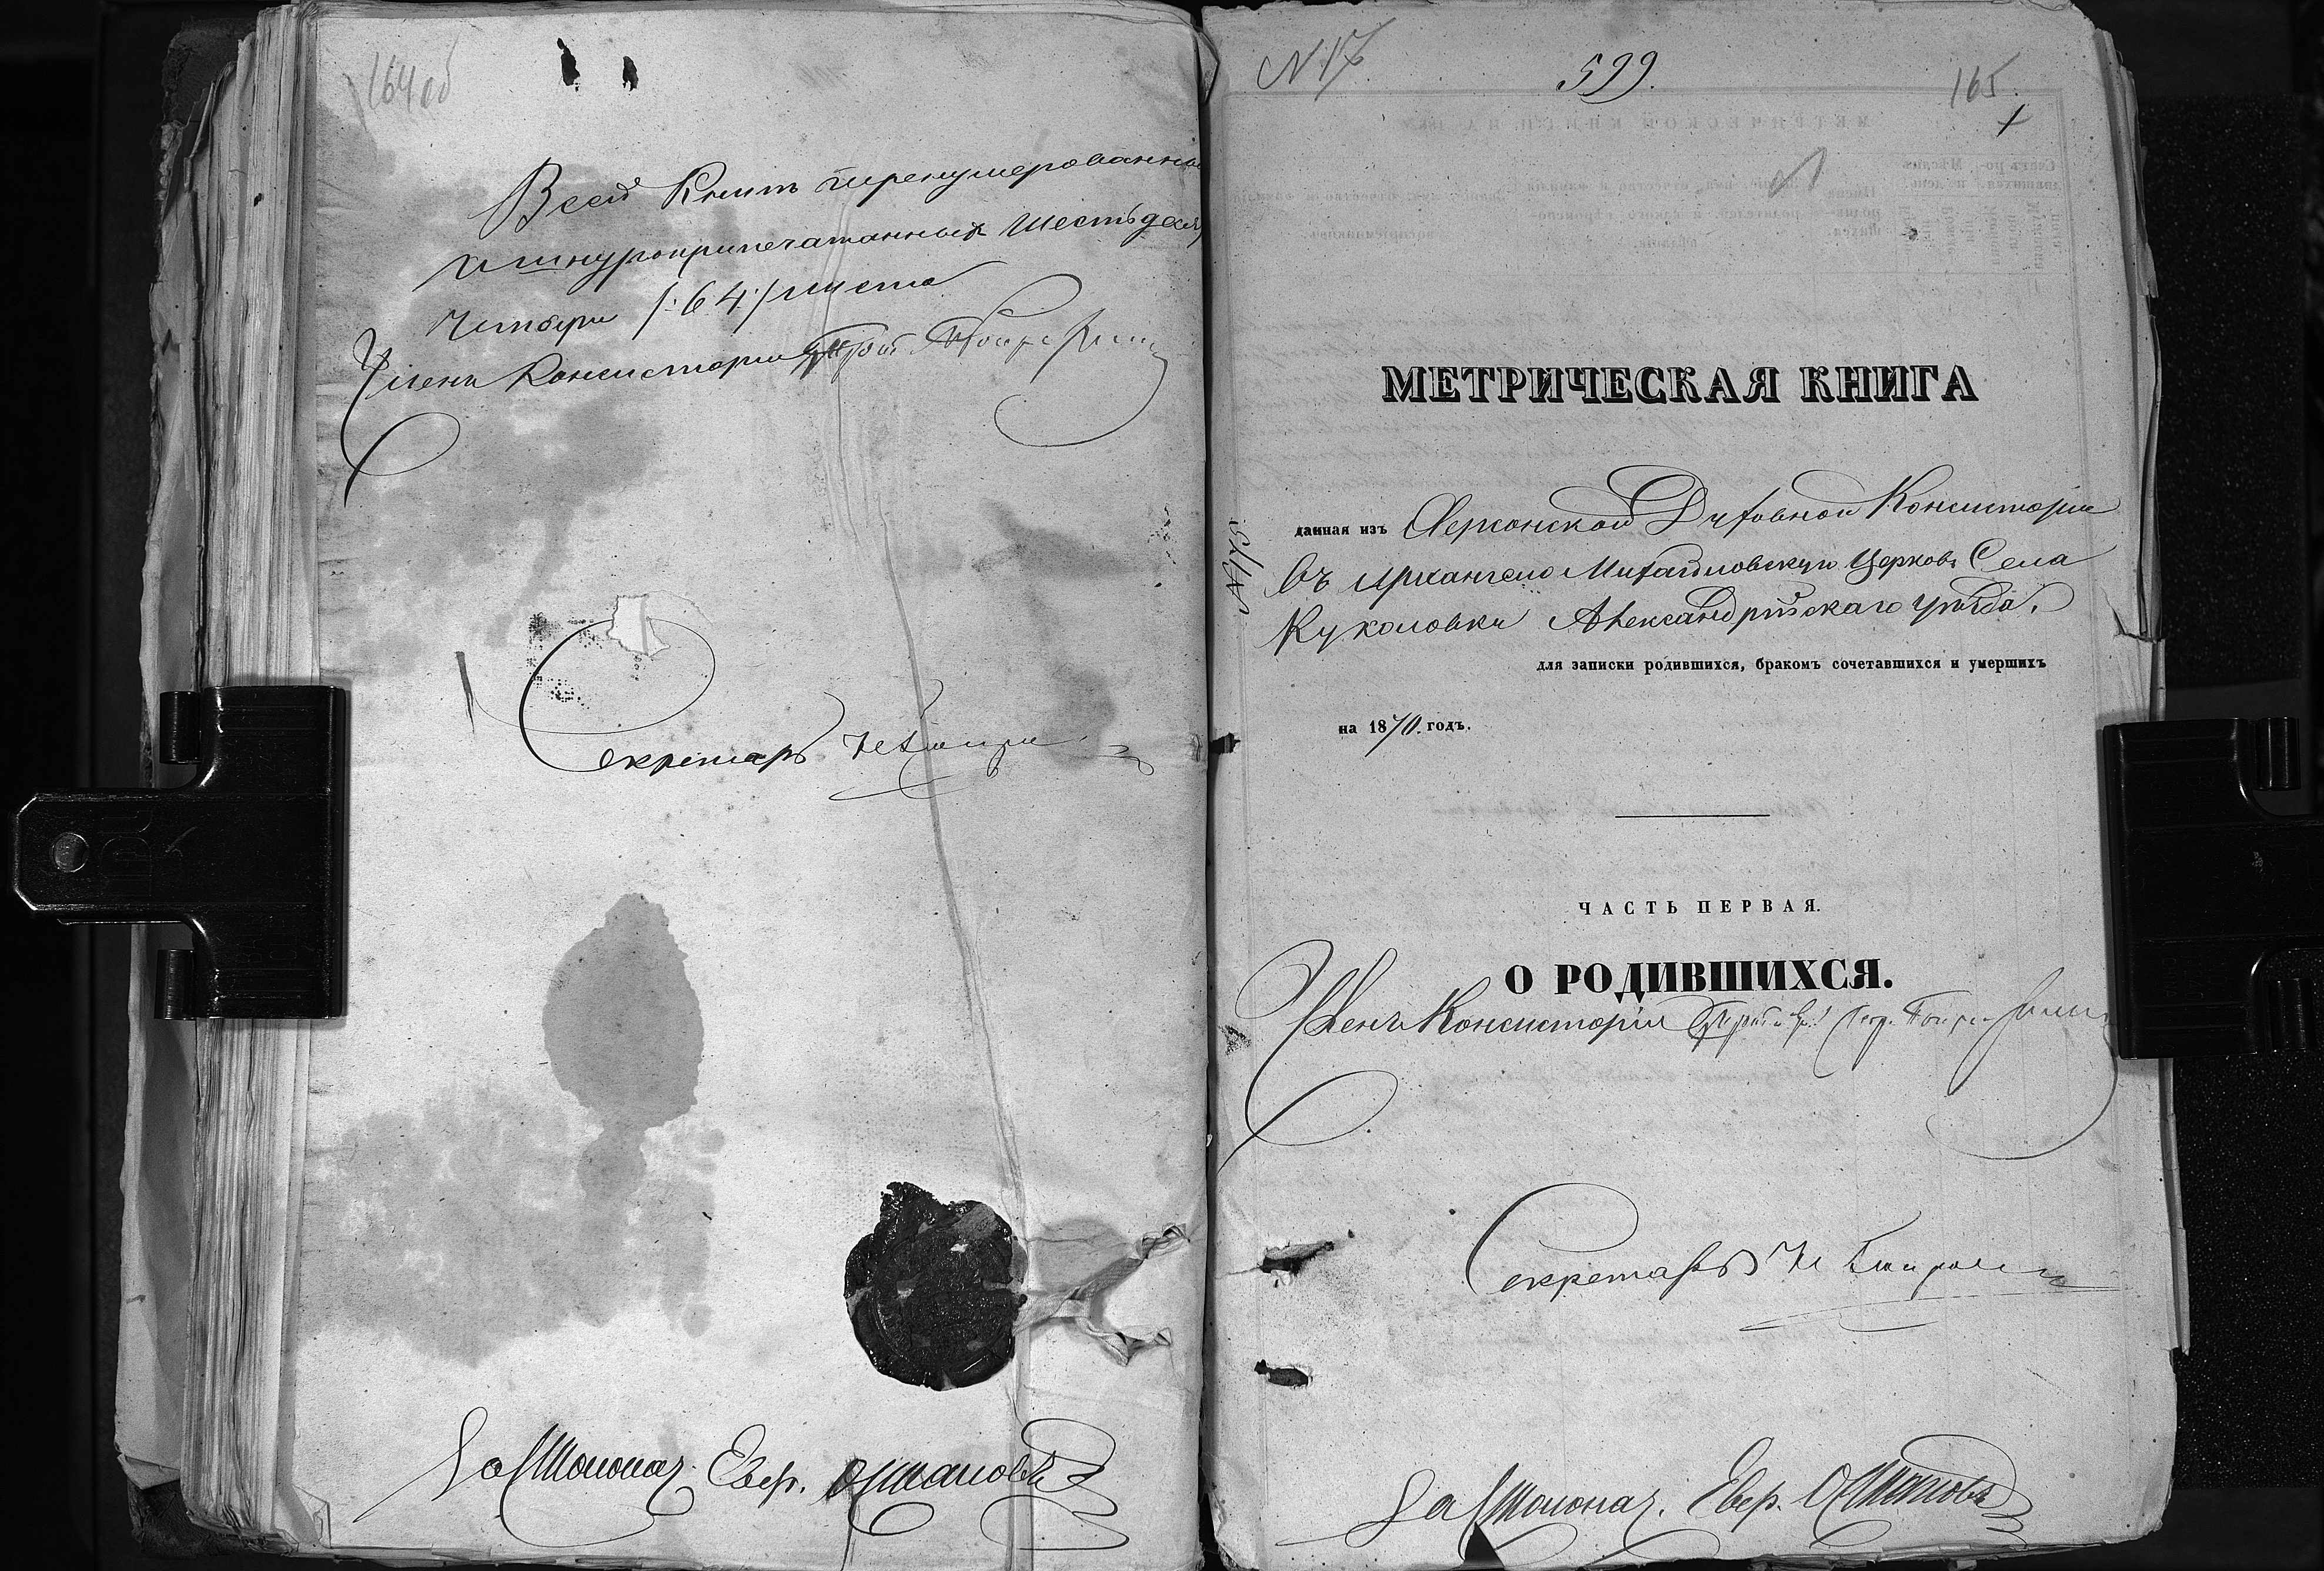 164об
Всей Книги пренумерованныхъ
и шнуроприпечатанныхъ шестьдесятъ
четыре /:64:/ листа
Членъ Консисторіи
Секретарь
За Столонач. Евгр.
N 17
599.
165
МЕТРИЧЕСКАЯ КНИГА
данная изъ Херсонской Духовной Консисторіи
въ Архангело Михайловскую Церковь Села
Куколовки Александрійскаго уѣзда.
для записки родившихся, бракомъ сочетавшихся и умершихъ
на 1870. годъ.
ЧАСТЬ ПЕРВАЯ.
О РОДИВШИХСЯ.
Членъ Консисторіи
Секретарь
За Столонач. Евгр.